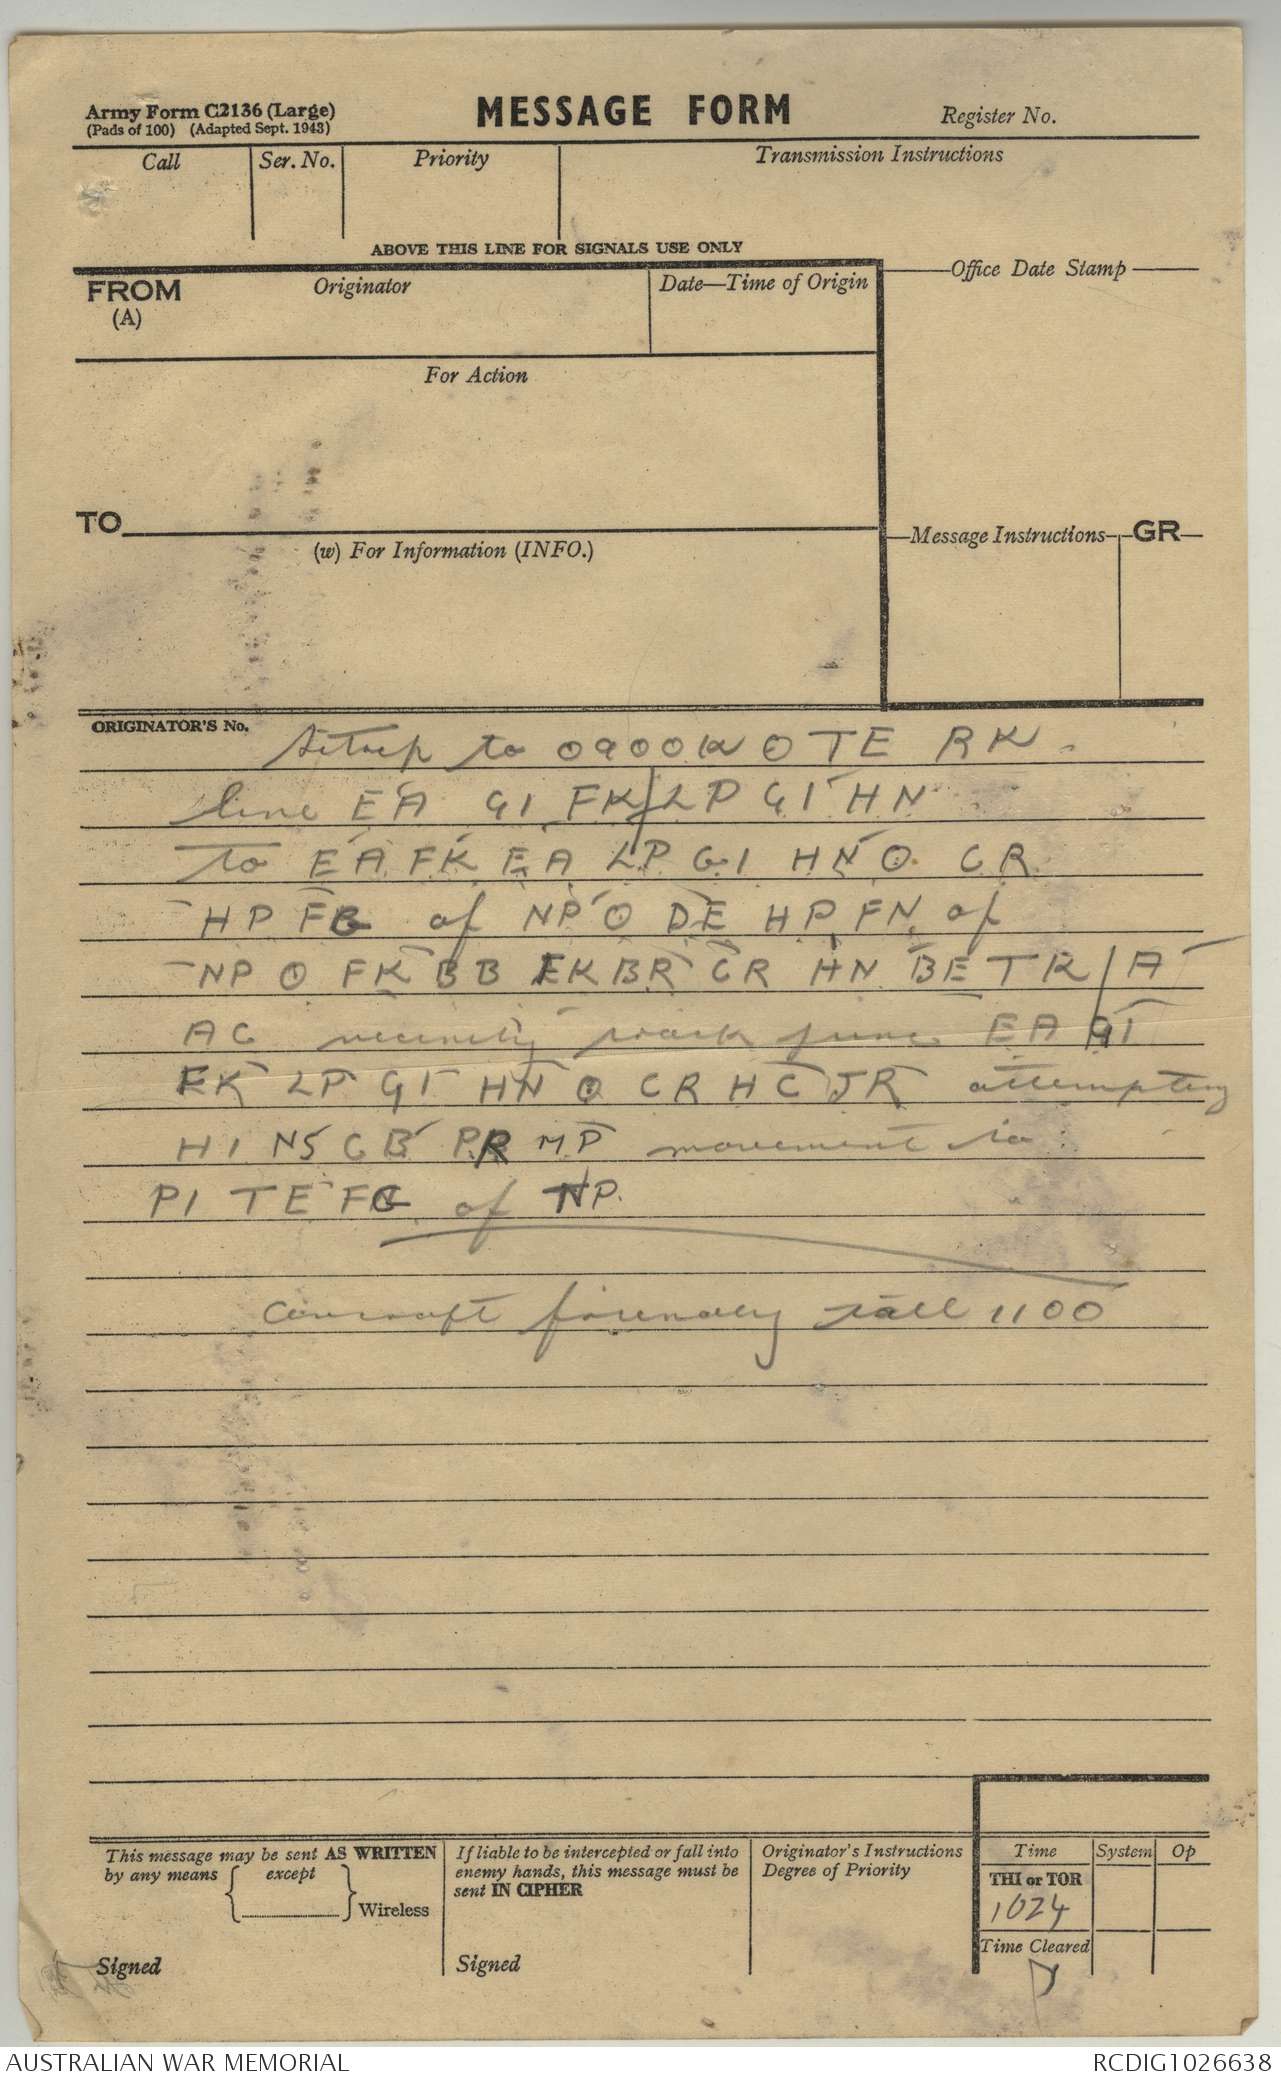 Army Form C2136 (Large)
(Pads of 100) (Adapted Sept. 1943)
MESSAGE FORM
Register No.
Call
Ser. No.
Priority
Transmission Instructions
ABOVE THIS LINE FOR SIGNALS USE ONLY
FROM
(A)
Originator
Date—Time of Origin
Office Date Stamp
For Action
TO
(w) For Information (INFO.)
Message Instructions
GR
ORIGINATOR'S No.
Sitrep to 0900 O TE RK
line EA GI FK / LP GI HN
to EA FK EA LP GI HN O CR
HP FG of NP O DE HP FN of
NP O FK BB FK BR CR HN BE TR / A
AC track junc EA GI
FK LP GI HN O CR HC JR attempting
HI NS CB PR MP movement to
PI TE FG of NP.
Aircraft friendly till 1100
This message may be sent AS WRITTEN
by any means { except } Wireless
Signed
If liable to be intercepted or fall into
enemy hands, this message must be
sent IN CIPHER
Signed
Originator's Instructions
Degree of Priority
Time
System
Op
THI or TOR
1024
Time Cleared
AUSTRALIAN WAR MEMORIAL
RCDIG1026638